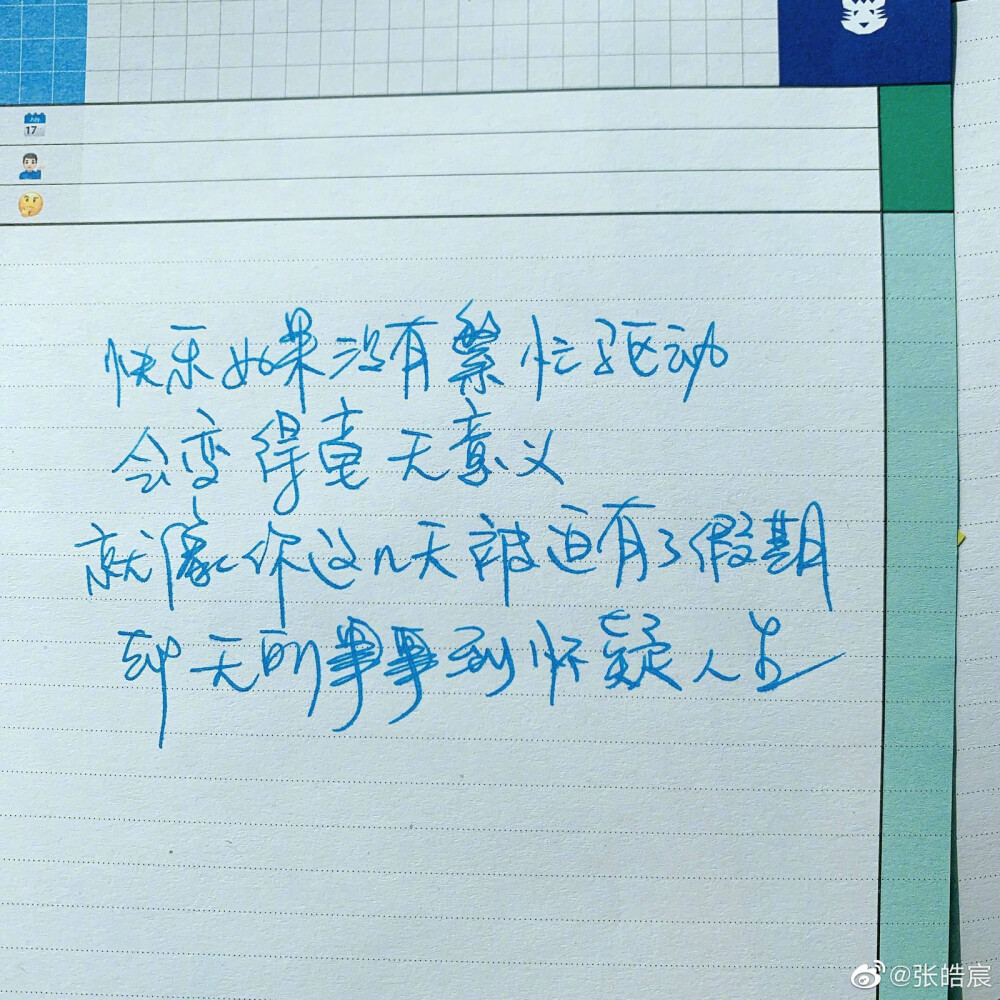 July
17
快乐如果没有繁忙驱动
会变得毫无意义
就像你这几天被迫有了假期
却无所事事到怀疑人生
@张皓宸